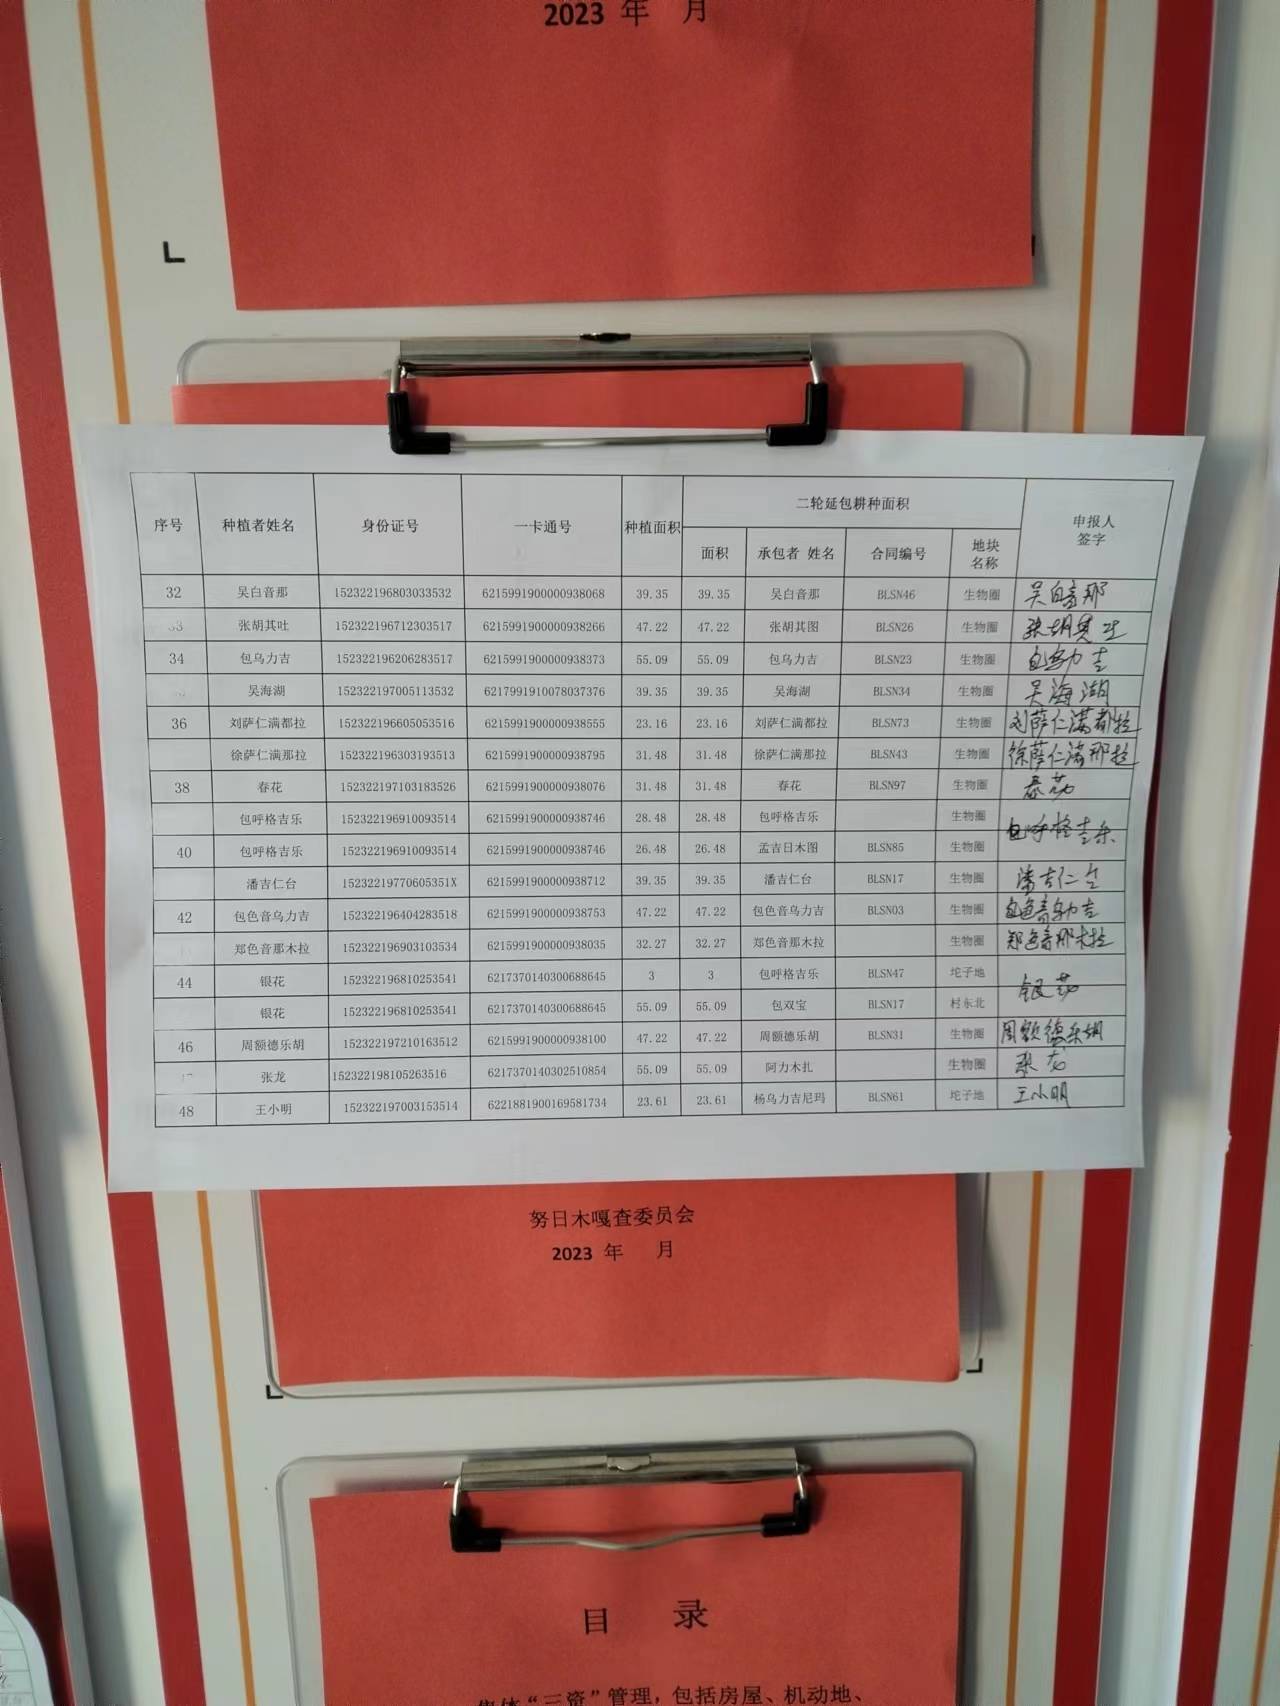 2023 年 月
序号 种植者姓名 身份证号 一卡通号 种植面积 二轮延包耕种面积 申报人签字
面积 承包者 姓名 合同编号 地块名称
32 吴白音那 152322196803033532 6215991900000938068 39.35 39.35 吴白音那 BLSN46 生物圈 吴白音那
33 张胡其吐 152322196712303517 6215991900000938266 47.22 47.22 张胡其图 BLSN26 生物圈 张胡其吐
34 包乌力吉 152322196206283517 6215991900000938373 55.09 55.09 包乌力吉 BLSN23 生物圈 包乌力吉
吴海湖 152322197005113532 6217991910078037376 39.35 39.35 吴海湖 BLSN34 生物圈 吴海湖
36 刘萨仁满都拉 152322196605053516 6215991900000938555 23.16 23.16 刘萨仁满都拉 BLSN73 生物圈 刘萨仁满都拉
徐萨仁满那拉 152322196303193513 6215991900000938795 31.48 31.48 徐萨仁满那拉 BLSN43 生物圈 徐萨仁满那拉
38 春花 152322197103183526 6215991900000938076 31.48 31.48 春花 BLSN97 生物圈 春花
包呼格吉乐 152322196910093514 6215991900000938746 28.48 28.48 包呼格吉乐 生物圈 包呼格吉乐
40 包呼格吉乐 152322196910093514 6215991900000938746 26.48 26.48 孟吉日木图 BLSN85 生物圈
潘吉仁台 15232219770605351X 6215991900000938712 39.35 39.35 潘吉仁台 BLSN17 生物圈 潘吉仁台
42 包色音乌力吉 152322196404283518 6215991900000938753 47.22 47.22 包色音乌力吉 BLSN03 生物圈 包色音乌力吉
郑色音那木拉 152322196903103534 6215991900000938035 32.27 32.27 郑色音那木拉 生物圈 郑色音那木拉
44 银花 152322196810253541 6217370140300688645 3 3 包呼格吉乐 BLSN47 坨子地 银花
银花 152322196810253541 6217370140300688645 55.09 55.09 包双宝 BLSN17 村东北
46 周额德乐胡 152322197210163512 6215991900000938100 47.22 47.22 周额德乐胡 BLSN31 生物圈 周额德乐胡
张龙 152322198105263516 6217370140302510854 55.09 55.09 阿力木扎 生物圈 张龙
48 王小明 152322197003153514 6221881900169581734 23.61 23.61 杨乌力吉尼玛 BLSN61 坨子地 王小明
努日木嘎查委员会
2023 年 月
目 录
集体“三资”管理，包括房屋、机动地、